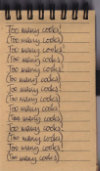 Too many cooks!
Too many cooks!
Too many cooks!
Too many cooks!
Too many cooks!
Too many cooks!
Too many cooks!
Too many cooks!
Too many cooks!
Too many cooks!
Too many cooks!
Too many cooks!
Too many cooks!
Too many cooks!